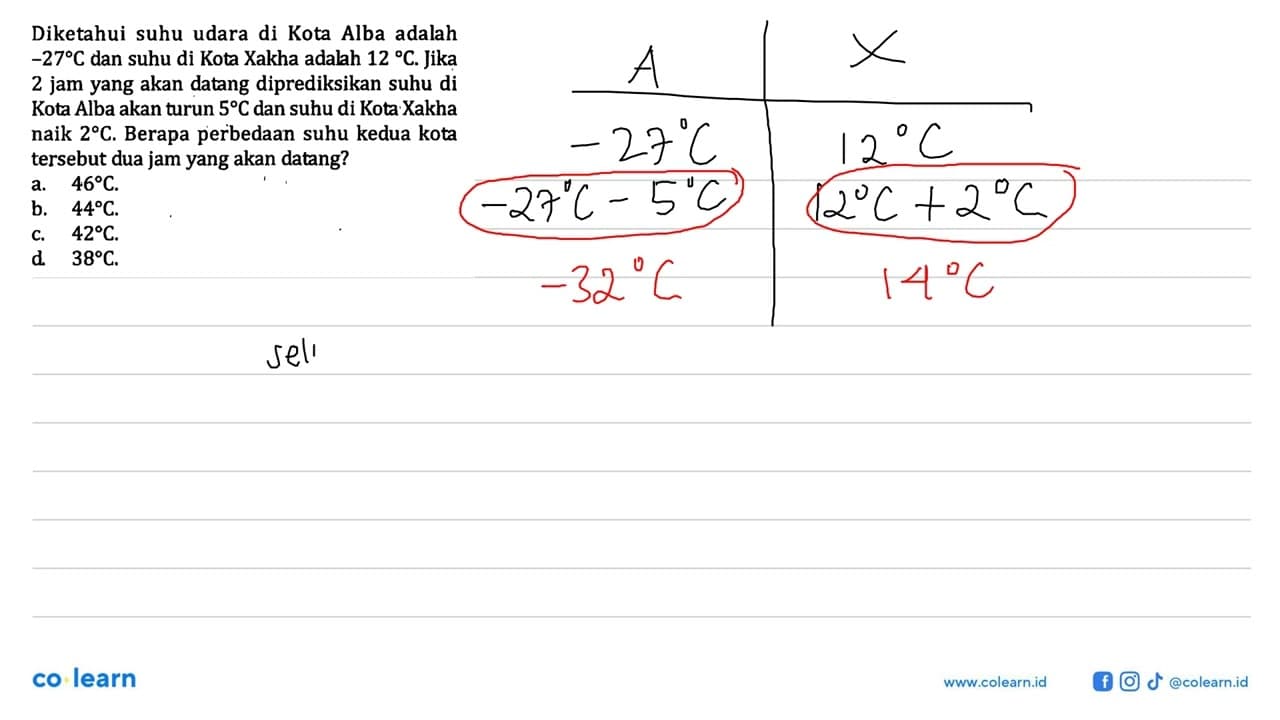 Diketahui suhu udara di Kota Alba adalah
–27°C dan suhu di Kota Xakha adalah 12 °C. Jika
2 jam yang akan datang diprediksikan suhu di
Kota Alba akan turun 5°C dan suhu di Kota Xakha
naik 2°C. Berapa perbedaan suhu kedua kota
tersebut dua jam yang akan datang?
a. 46°C.
b. 44°C.
c. 42°C.
d. 38°C.
A X
-27°C 12°C
-27°C - 5°C 12°C + 2°C
-32°C 14°C
seli
co learn
www.colearn.id @colearn.id